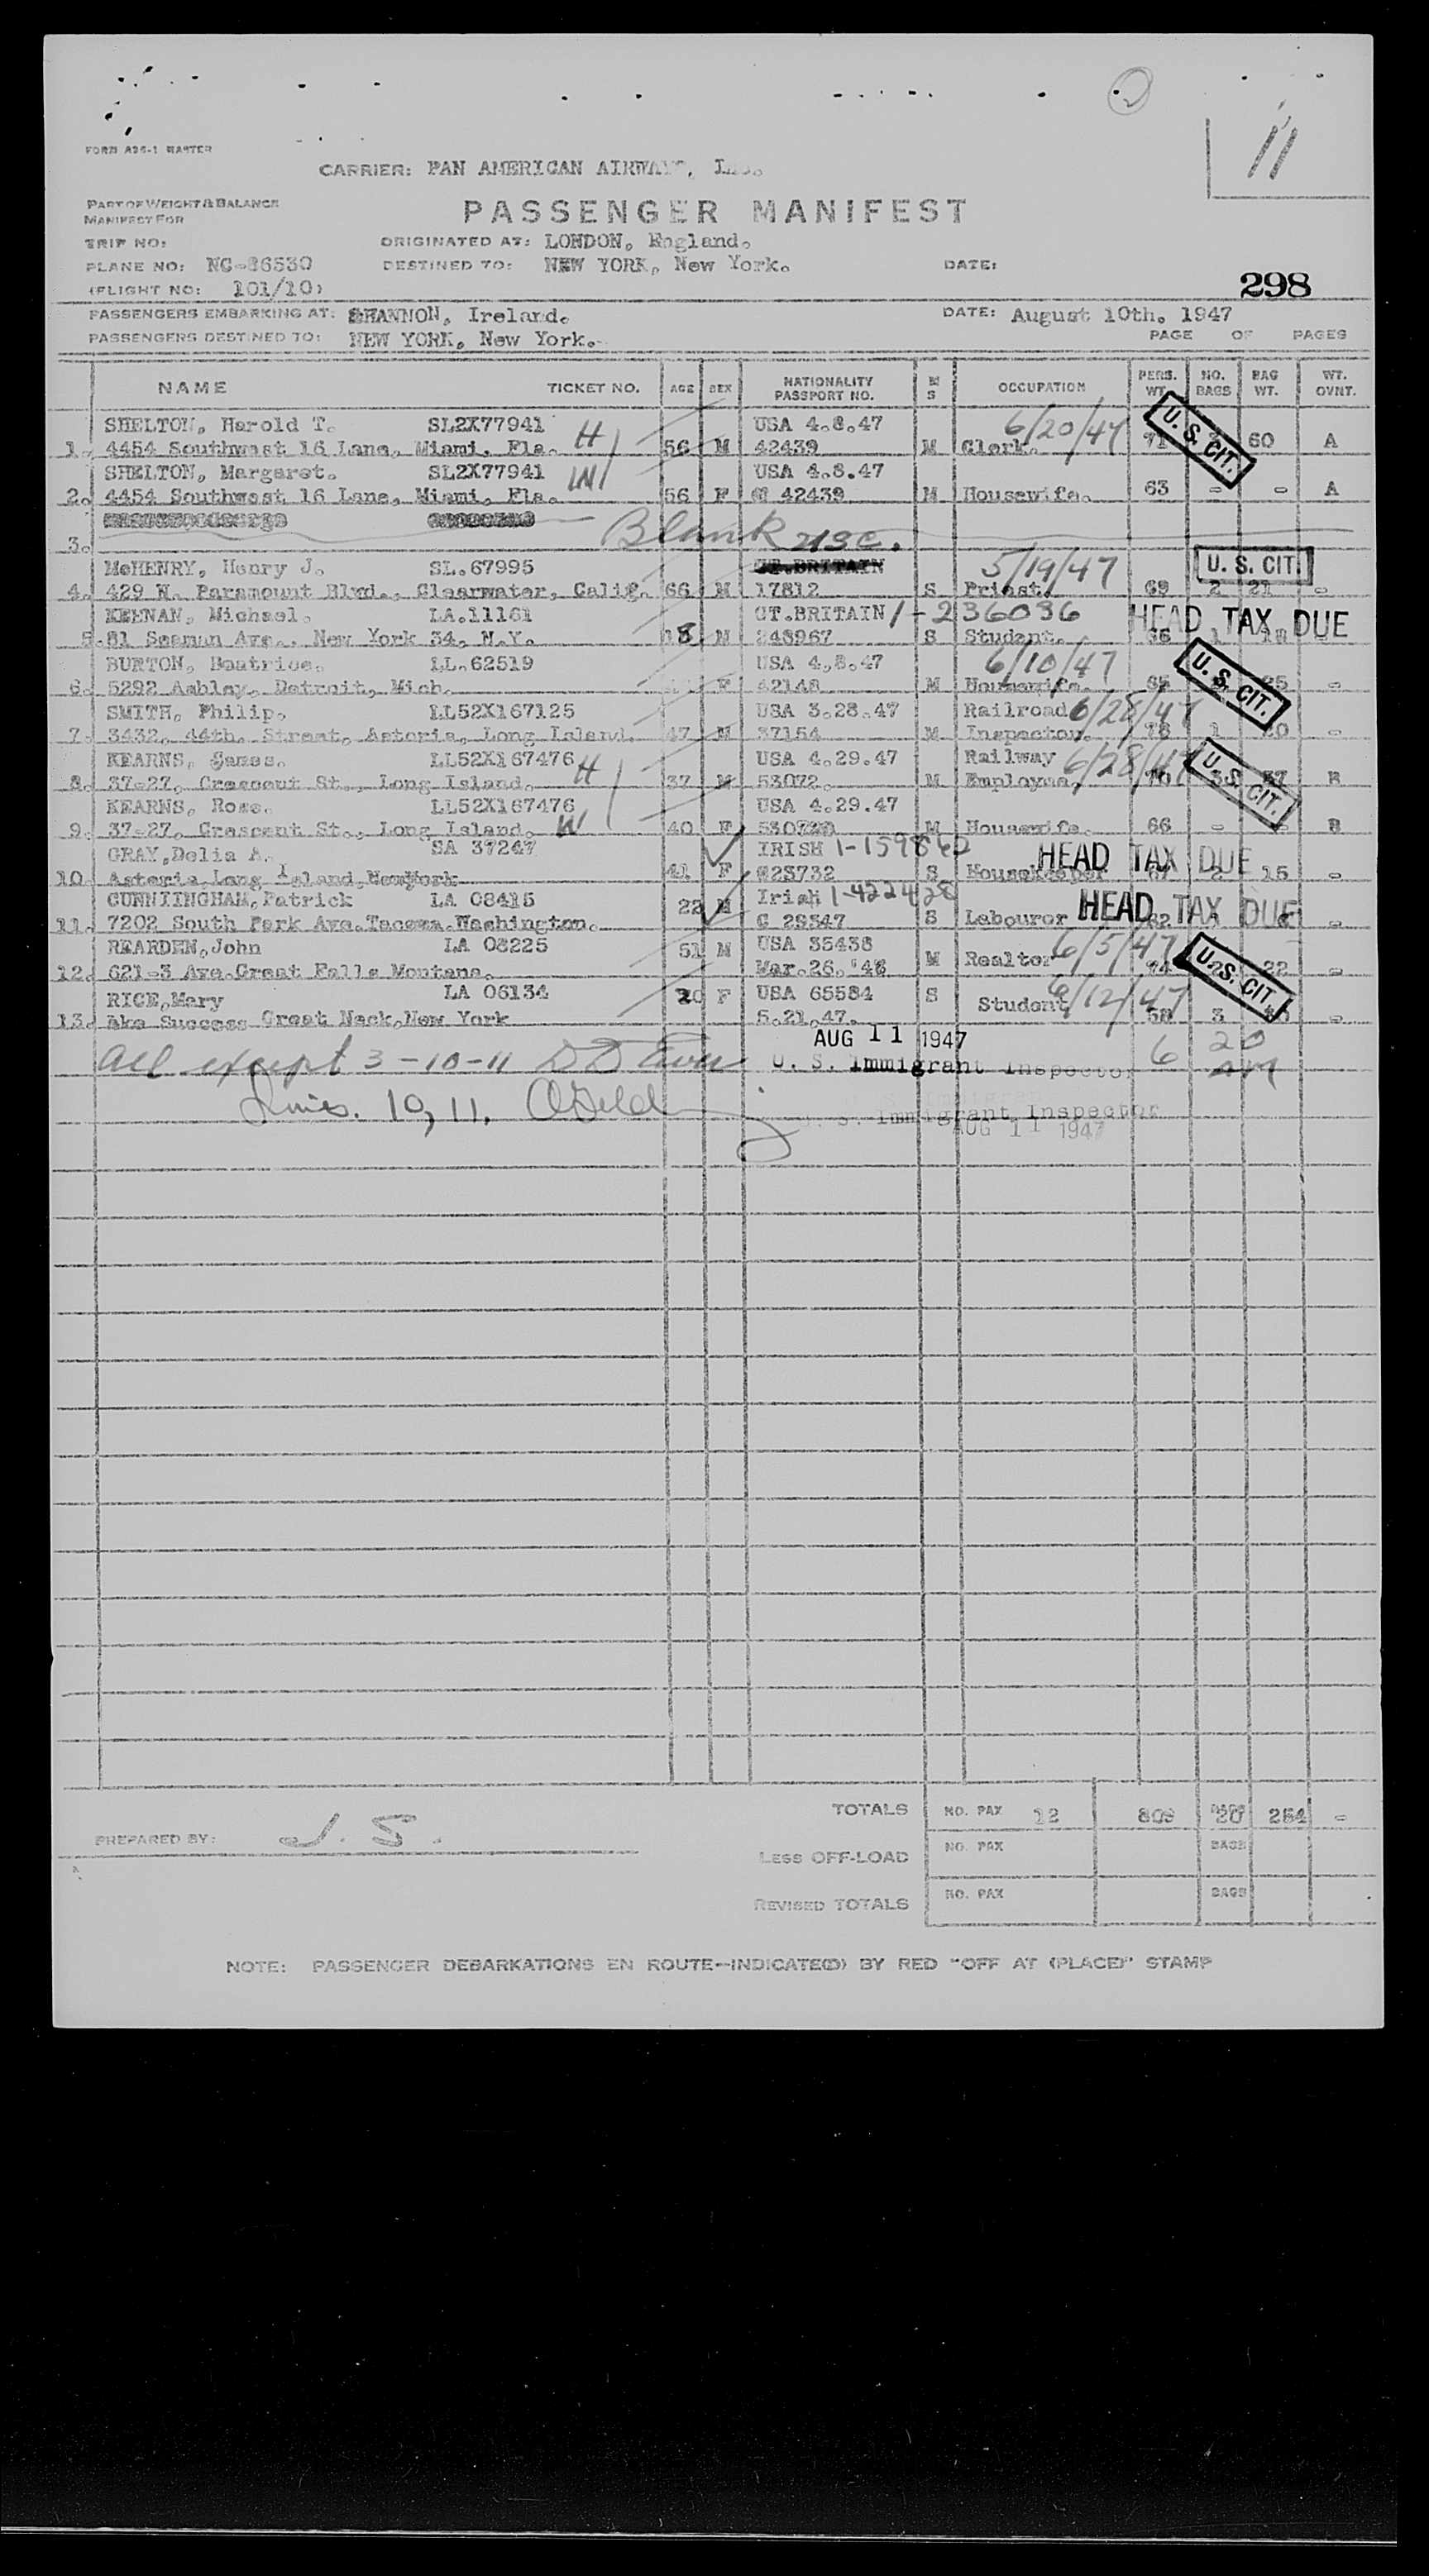 11
FORM A26-1 MASTER
CARRIER: PAN AMERICAN AIRWAYS,
PART OF WEIGHT & BALANCE
MANIFEST FOR
PASSENGER MANIFEST
TRIP NO: ORIGINATED AT: LONDON, England.
PLANE NO: NC-86530 DESTINED TO: NEW YORK, New York. DATE:
298
(FLIGHT NO: 101/10)
PASSENGERS EMBARKING AT: SHANNON, Ireland. DATE: August 10th. 1947
PASSENGERS DESTINED TO: NEW YORK, New York. PAGE OF PAGES
NAME TICKET NO. AGE SEX NATIONALITY PASSPORT NO. M S OCCUPATION PERS. WT. NO. BAGS BAG WT. WT. OVNT.
SHELTON, Harold T. SL2X77941 H USA 4.8.47 6/20/47 U. S. CIT.
1. 4454 Southwest 16 Lane, Miami, Fla. 56 M 42439 M Clerk. 71 60 A
SHELTON, Margaret. SL2X77941 W USA 4.8.47
2. 4454 Southwest 16 Lane, Miami, Fla. 56 F 42439 M Housewife. 63 - - A
3. Blank use.
McHENRY, Henry J. SL.67995 GT.BRITAIN 5/19/47 U. S. CIT.
4. 429 N. Paramount Blvd., Clearwater, Calif. 66 M 17812 S Priest. 69 2 21 -
KEENAN, Michael. LA.11161 GT.BRITAIN 1-236036 HEAD TAX DUE
5. 81 Seaman Ave., New York 34, N.Y. 18 M 248967 S Student. 1
BURTON, Beatrice. LL.62519 USA 4.8.47 6/10/47 U. S. CIT.
6. 5292 Ashley, Detroit, Mich. F 42148 M Housewife. 65 25 -
SMITH, Philip. LL52X167125 USA 3.28.47 Railroad 6/28/47
7. 3432, 44th. Street, Astoria, Long Island. 47 M 37154 M Inspector. 78 1 20 -
KEARNS, James. LL52X167476 H USA 4.29.47 Railway 6/28/47 U. S. CIT.
8. 37-27, Crescent St., Long Island. 37 M 53072. M Employee. 70 3 37 B
KEARNS, Rose. LL52X167476 W USA 4.29.47
9. 37-27, Crescent St., Long Island. 40 F M Housewife. 66 - B
GRAY,Delia A. SA 37247 IRISH HEAD TAX DUE
10. Astoria Long Island,NewYork 41 F S Housekeeper 67 2 15 -
CUNNIINGHAM,Patrick LA 08415 Irish 1-422428 HEAD TAX DUE
11. 7202 South Park Ave.Tacoma Washington. 22 M C 29547 S Labourer 62 -
REARDEN,John LA 08225 51 M USA 35438 M Realtor 6/5/47 U. S. CIT.
12. 621-3 Ave.Great Falls Montana. Mar.26.'46 74 22 -
RICE,Mary LA 06134 20 F USA 65584 S Student 6/12/47
13. ake Success Great Neck,New York 5.21.47. 58 3 -
AUG 11 1947
All except 3-10-11 U. S. Immigrant Inspector 6 20
Lines. 10, 11. U. S. Immigrant Inspector
AUG 11 1947
TOTALS NO. PAX 12 809 BAGS 20 264 -
PREPARED BY: J. S.
LESS OFF-LOAD NO. PAX BAGS
REVISED TOTALS NO. PAX BAGS
NOTE: PASSENGER DEBARKATIONS EN ROUTE—INDICATE(D) BY RED "OFF AT (PLACE)" STAMP